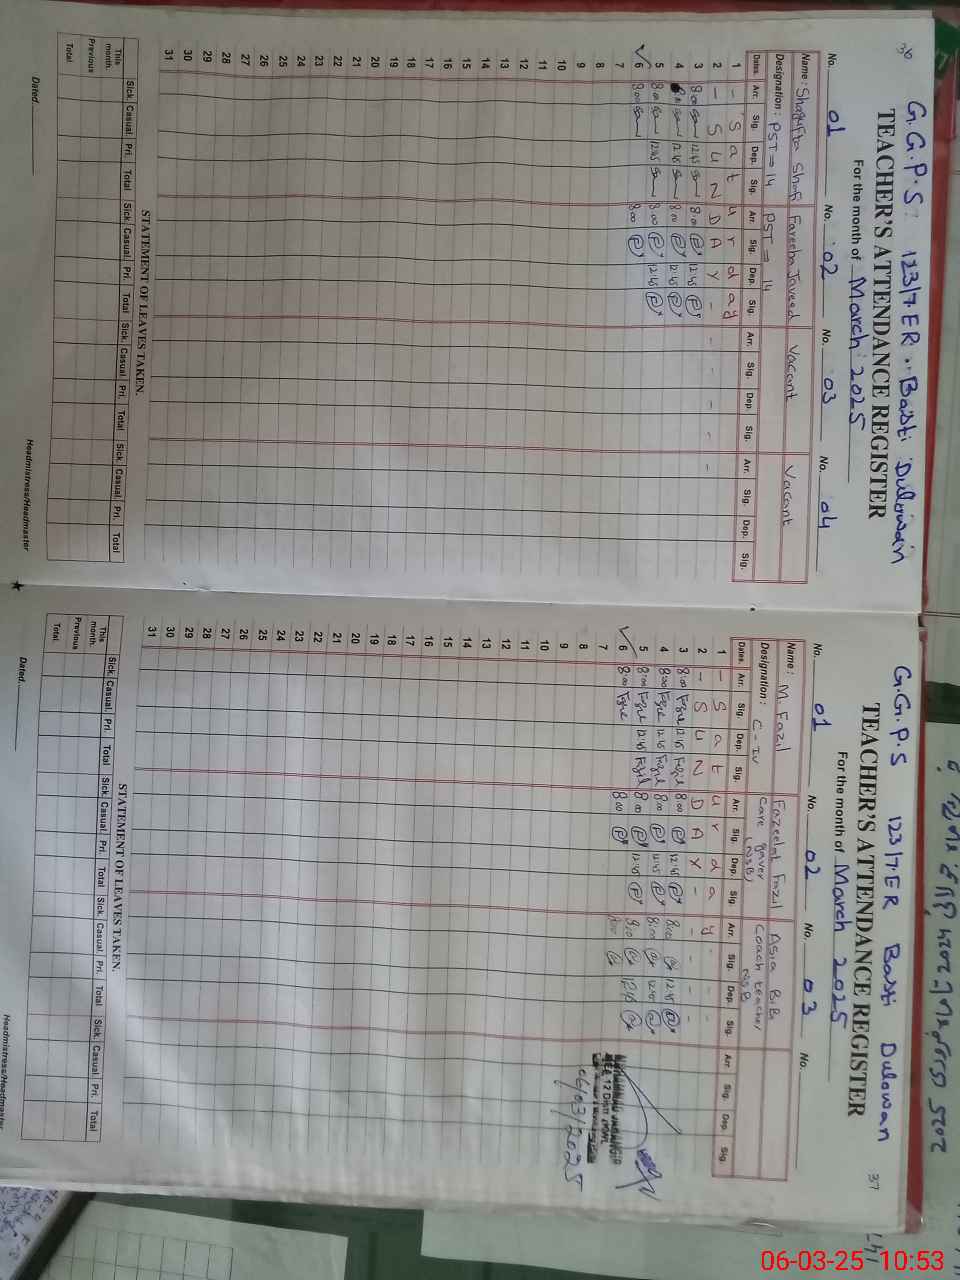 36
G.G.P.S. 123/7.ER.. Basti Dulowan
TEACHER'S ATTENDANCE REGISTER
For the month of March 2025
No. 01 No. 02 No. 03 No. 04
Name: Shagufta Shafi Fareeha Javeed Vacant Vacant
Designation: PST=14 PST=14
Dates. Arr. Sig. Dep. Sig. Arr. Sig. Dep. Sig. Arr. Sig. Dep. Sig. Arr. Sig. Dep. Sig.
1 - S a t u r d a y
2 - S U N D A Y - - - - -
3 8:00 12:45 8:00 12:45
4 8:00 12:45 8:00 12:45
5 8:00 12:45 8:00 12:45
6 8:00 8:00
7
8
9
10
11
12
13
14
15
16
17
18
19
20
21
22
23
24
25
26
27
28
29
30
31
STATEMENT OF LEAVES TAKEN.
Sick. Casual. Pri. Total Sick. Casual. Pri. Total Sick. Casual. Pri. Total Sick. Casual. Pri. Total
This month.
Previous
Total
Dated.
Headmistress/Headmaster
37
G.G.P.S 123/7.ER Basti Dulowan
TEACHER'S ATTENDANCE REGISTER
For the month of March 2025
No. 01 No. 02 No. 03 No.
Name: M. Fazil Fazeelat Fazil Asia BiBi
Designation: C-IV Care giver (NSB) Coach teacher NSB
Dates. Arr. Sig. Dep. Sig. Arr. Sig. Dep. Sig. Arr. Sig. Dep. Sig. Arr. Sig. Dep. Sig.
1 - S a t u r d a y - - -
2 - S U N D A Y - - - - -
3 8:00 Fazil 12:45 Fazil 8:00 12:45 8:00 12:45
4 8:00 Fazil 12:45 Fazil 8:00 12:45 8:00 12:45
5 8:00 Fazil 12:45 Fazil 8:00 12:45 8:00 12:45
6 8:00 Fazil 8:00 8:00
7
8
9
10
11
12
13
14
15
16
17
18
19
20
21
22
23
24
25
26
27
28
29
30
31
06/03/2025
STATEMENT OF LEAVES TAKEN.
Sick. Casual. Pri. Total Sick. Casual. Pri. Total Sick. Casual. Pri. Total Sick. Casual. Pri. Total
This month.
Previous
Total
Dated.
Headmistress/Headmaster
06-03-25 10:53